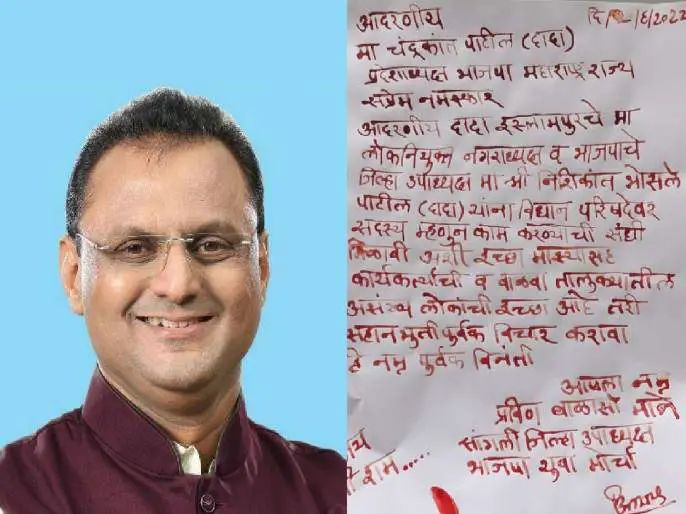 आदरणीय
दि /6/2022
मा चंद्रकांत पाटील (दादा)
प्रदेशाध्यक्ष भाजपा महाराष्ट्र राज्य
सप्रेम नमस्कार
आदरणीय दादा इस्लामपुरचे मा
लोकनियुक्त नगराध्यक्ष व भाजपाचे
जिल्हा उपाध्यक्ष मा श्री निशिकांत भोसले
पाटील (दादा) यांना विधान परिषदेवर
सदस्य म्हणुन काम करण्याची संधी
मिळावी अशी इच्छा माझ्यासह
कार्यकर्त्यांची व वाळवा तालुक्यातील
असंख्य लोकांची इच्छा आहे तरी
सहानभुती पुर्वक विचार करावा
हे नम्र पुर्वक विनंती
आपला नम्र
प्रविण बाळासो माने
सांगली जिल्हा उपाध्यक्ष
भाजपा युवा मोर्चा
राम.....